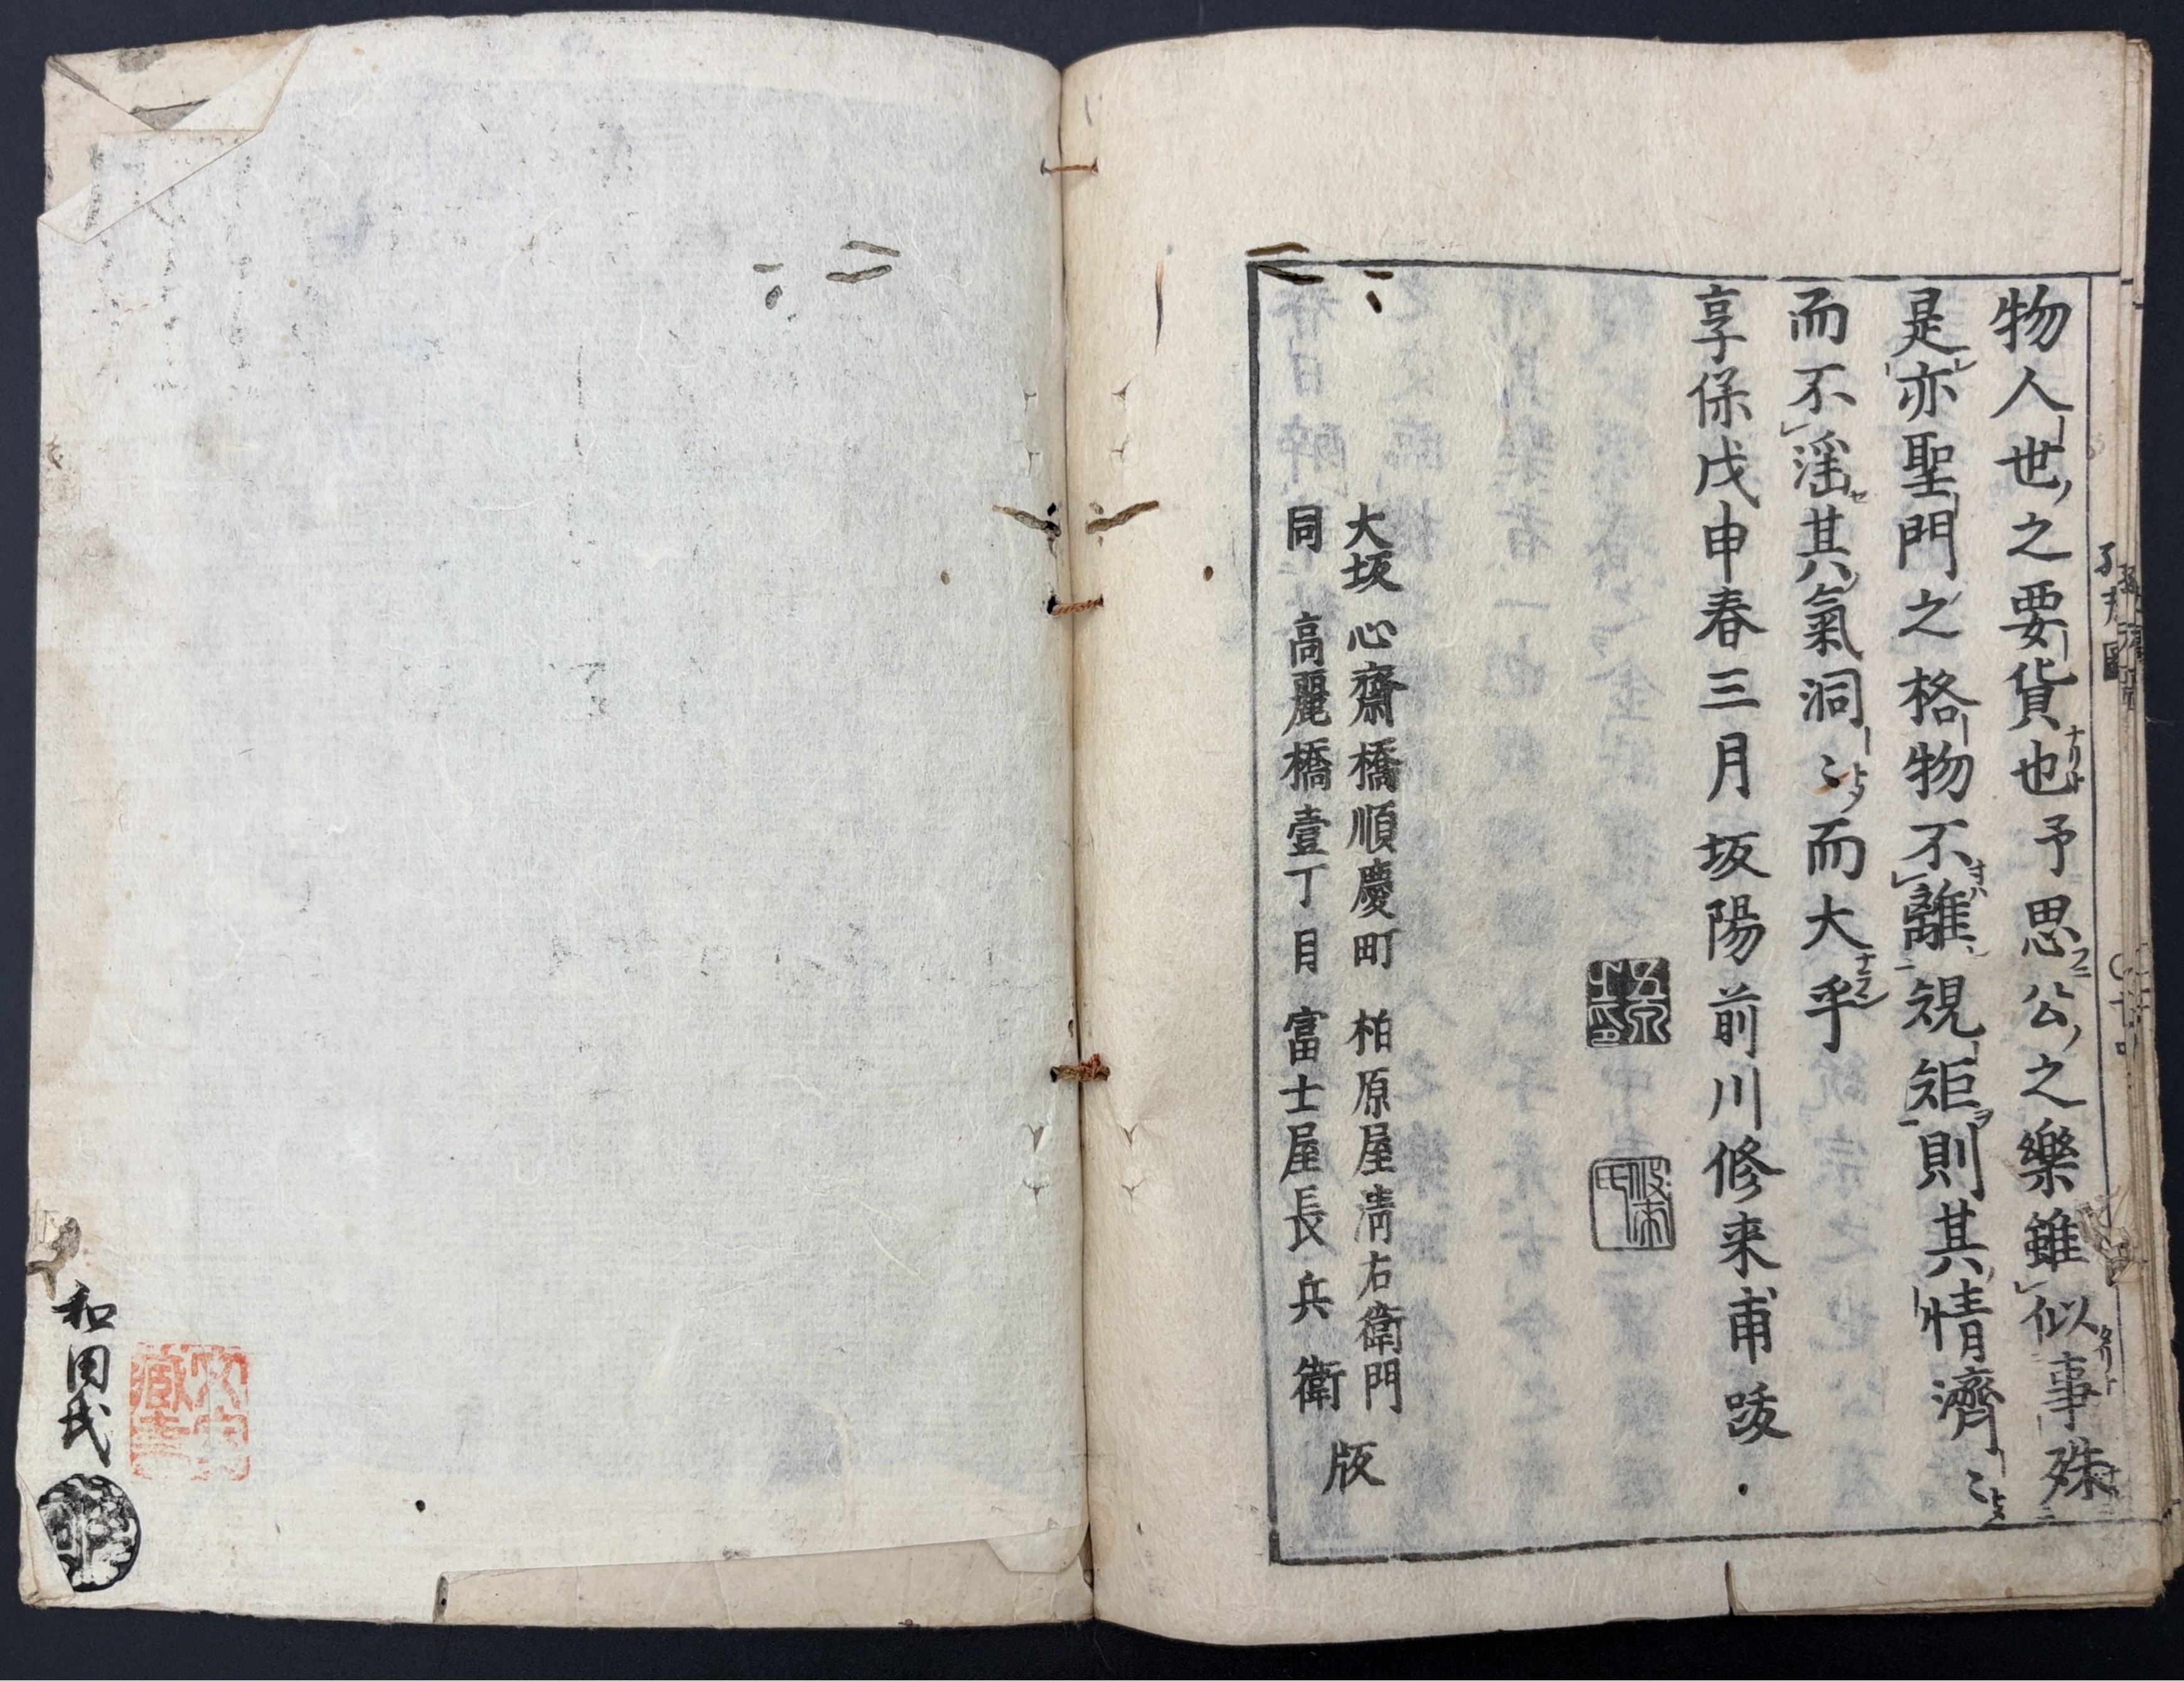 物人世之要貨也予思公之樂雖似事殊
是亦聖門之格物不離規矩則其情濟〻
而不滛其氣洞〻而大乎
享保戊申春三月坂陽前川修来甫跋
大坂 心齋橋順慶町 柏原屋淸右衛門
同 高麗橋壹丁目 富士屋長兵衛
版
和田氏